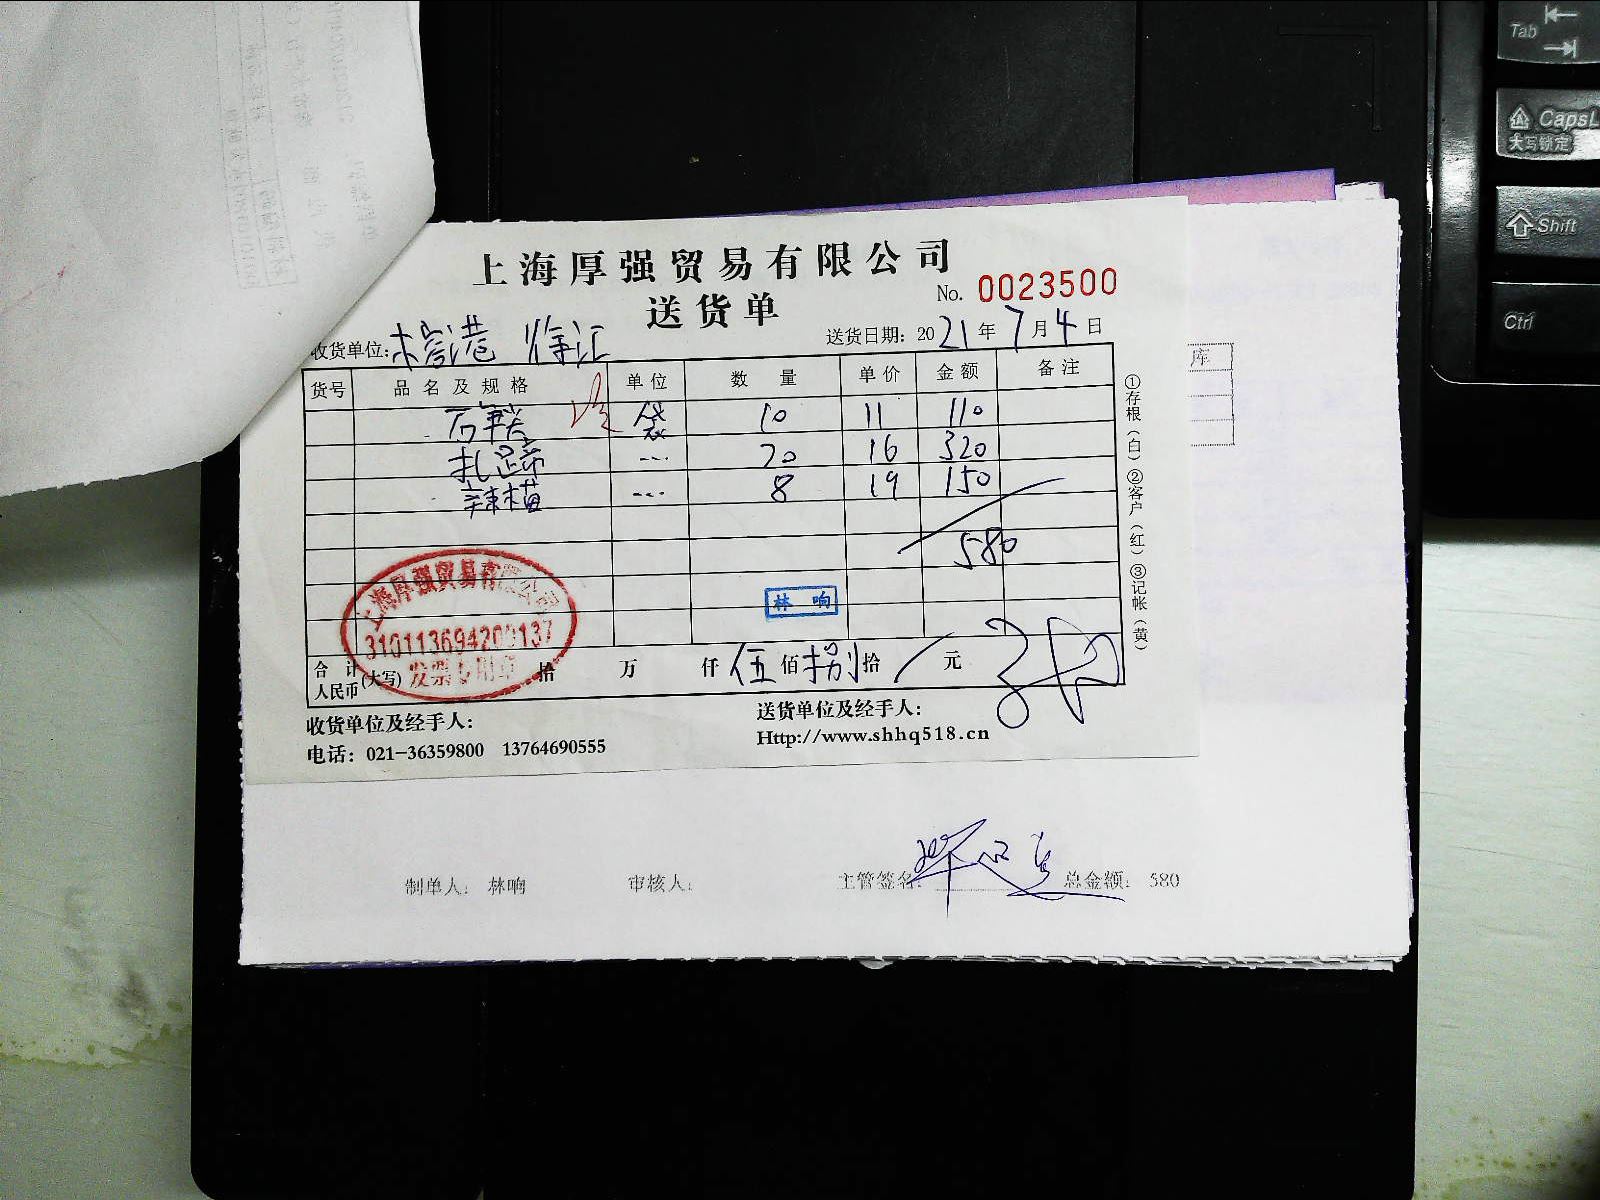 上海厚强贸易有限公司
送货单
No. 0023500
收货单位: 徐汇
送货日期: 2021年7月4日
货号 品名及规格 单位 数量 单价 金额 备注
袋 10 11 110
扎蹄 --- 20 16 320
--- 8 19 150
580
林响
上海厚强贸易有限公司
310113694200137
发票专用章
合计人民币(大写) 拾 万 仟 伍 佰 捌 拾 元
收货单位及经手人:
送货单位及经手人:
电话: 021-36359800 13764690555
Http://www.shhq518.cn
①存根(白)②客户(红)③记帐(黄)
制单人: 林响 审核人: 主管签名: 总金额: 580
库
Tab
CapsL
大写锁定
Shift
Ctrl